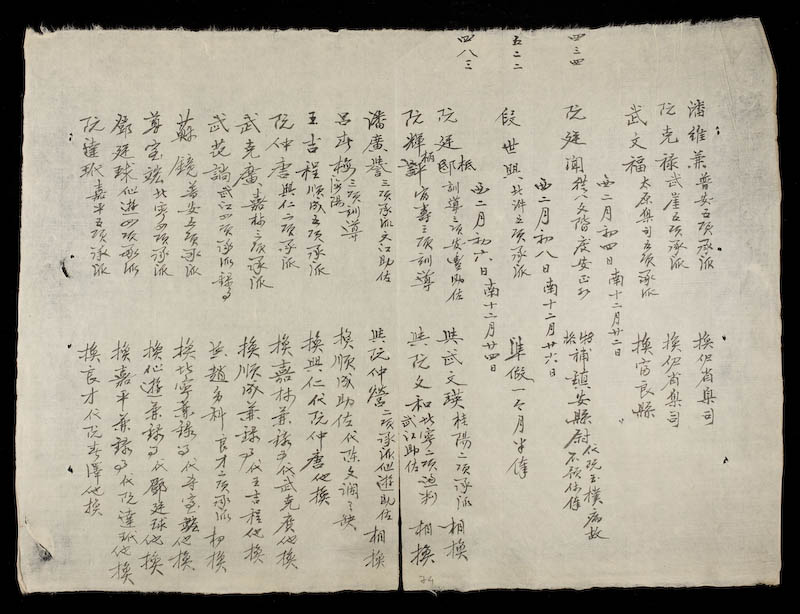 潘維業普安五項承派 換伊省臬司
阮克祿武崖五項承派 換伊省臬司
武文福太原臬司五項承派 換富良縣
西二月初四日南十二月廿二日
四三四
阮廷聞從八文階 特補鎮安縣尉代阮玉樸病故
西二月初八日南十二月廿六日
五二二
段世興北許五項承派 準假一个月半俸
西二月初六日南十二月廿四日
四八三
阮廷郿訓導三項安豐助佐 與武文瑛桂陽二項承派相換
阮輝富壽三項訓導 與阮文和北寧二項通判武江助佐相換
潘廣譽三項承派文江助佐 與阮仲營二項承派仙遊助佐相換
呂 三項訓導 換順成助佐代陳文潤之缺
王吉程順成五項承派 換興仁代阮仲唐他換
阮仲唐興仁二項承派 換嘉林兼錄事代武克廣他換
武克廣嘉林三項承派 換順成兼錄事代王吉程他換
武 武江四項承派錄事 與趙 科良才二項承派相換
蘇鏡普安五項承派 換北寧兼錄事代尊室 他換
尊室 北寧四項承派 換仙遊兼錄事代鄧廷球他換
鄧廷球仙遊四項承派 換嘉平兼錄事代阮達 他換
阮達 嘉平五項承派 換良才代阮春澤他換